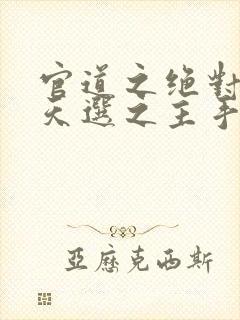 官道之绝對
天選之主手
亞歷克西斯